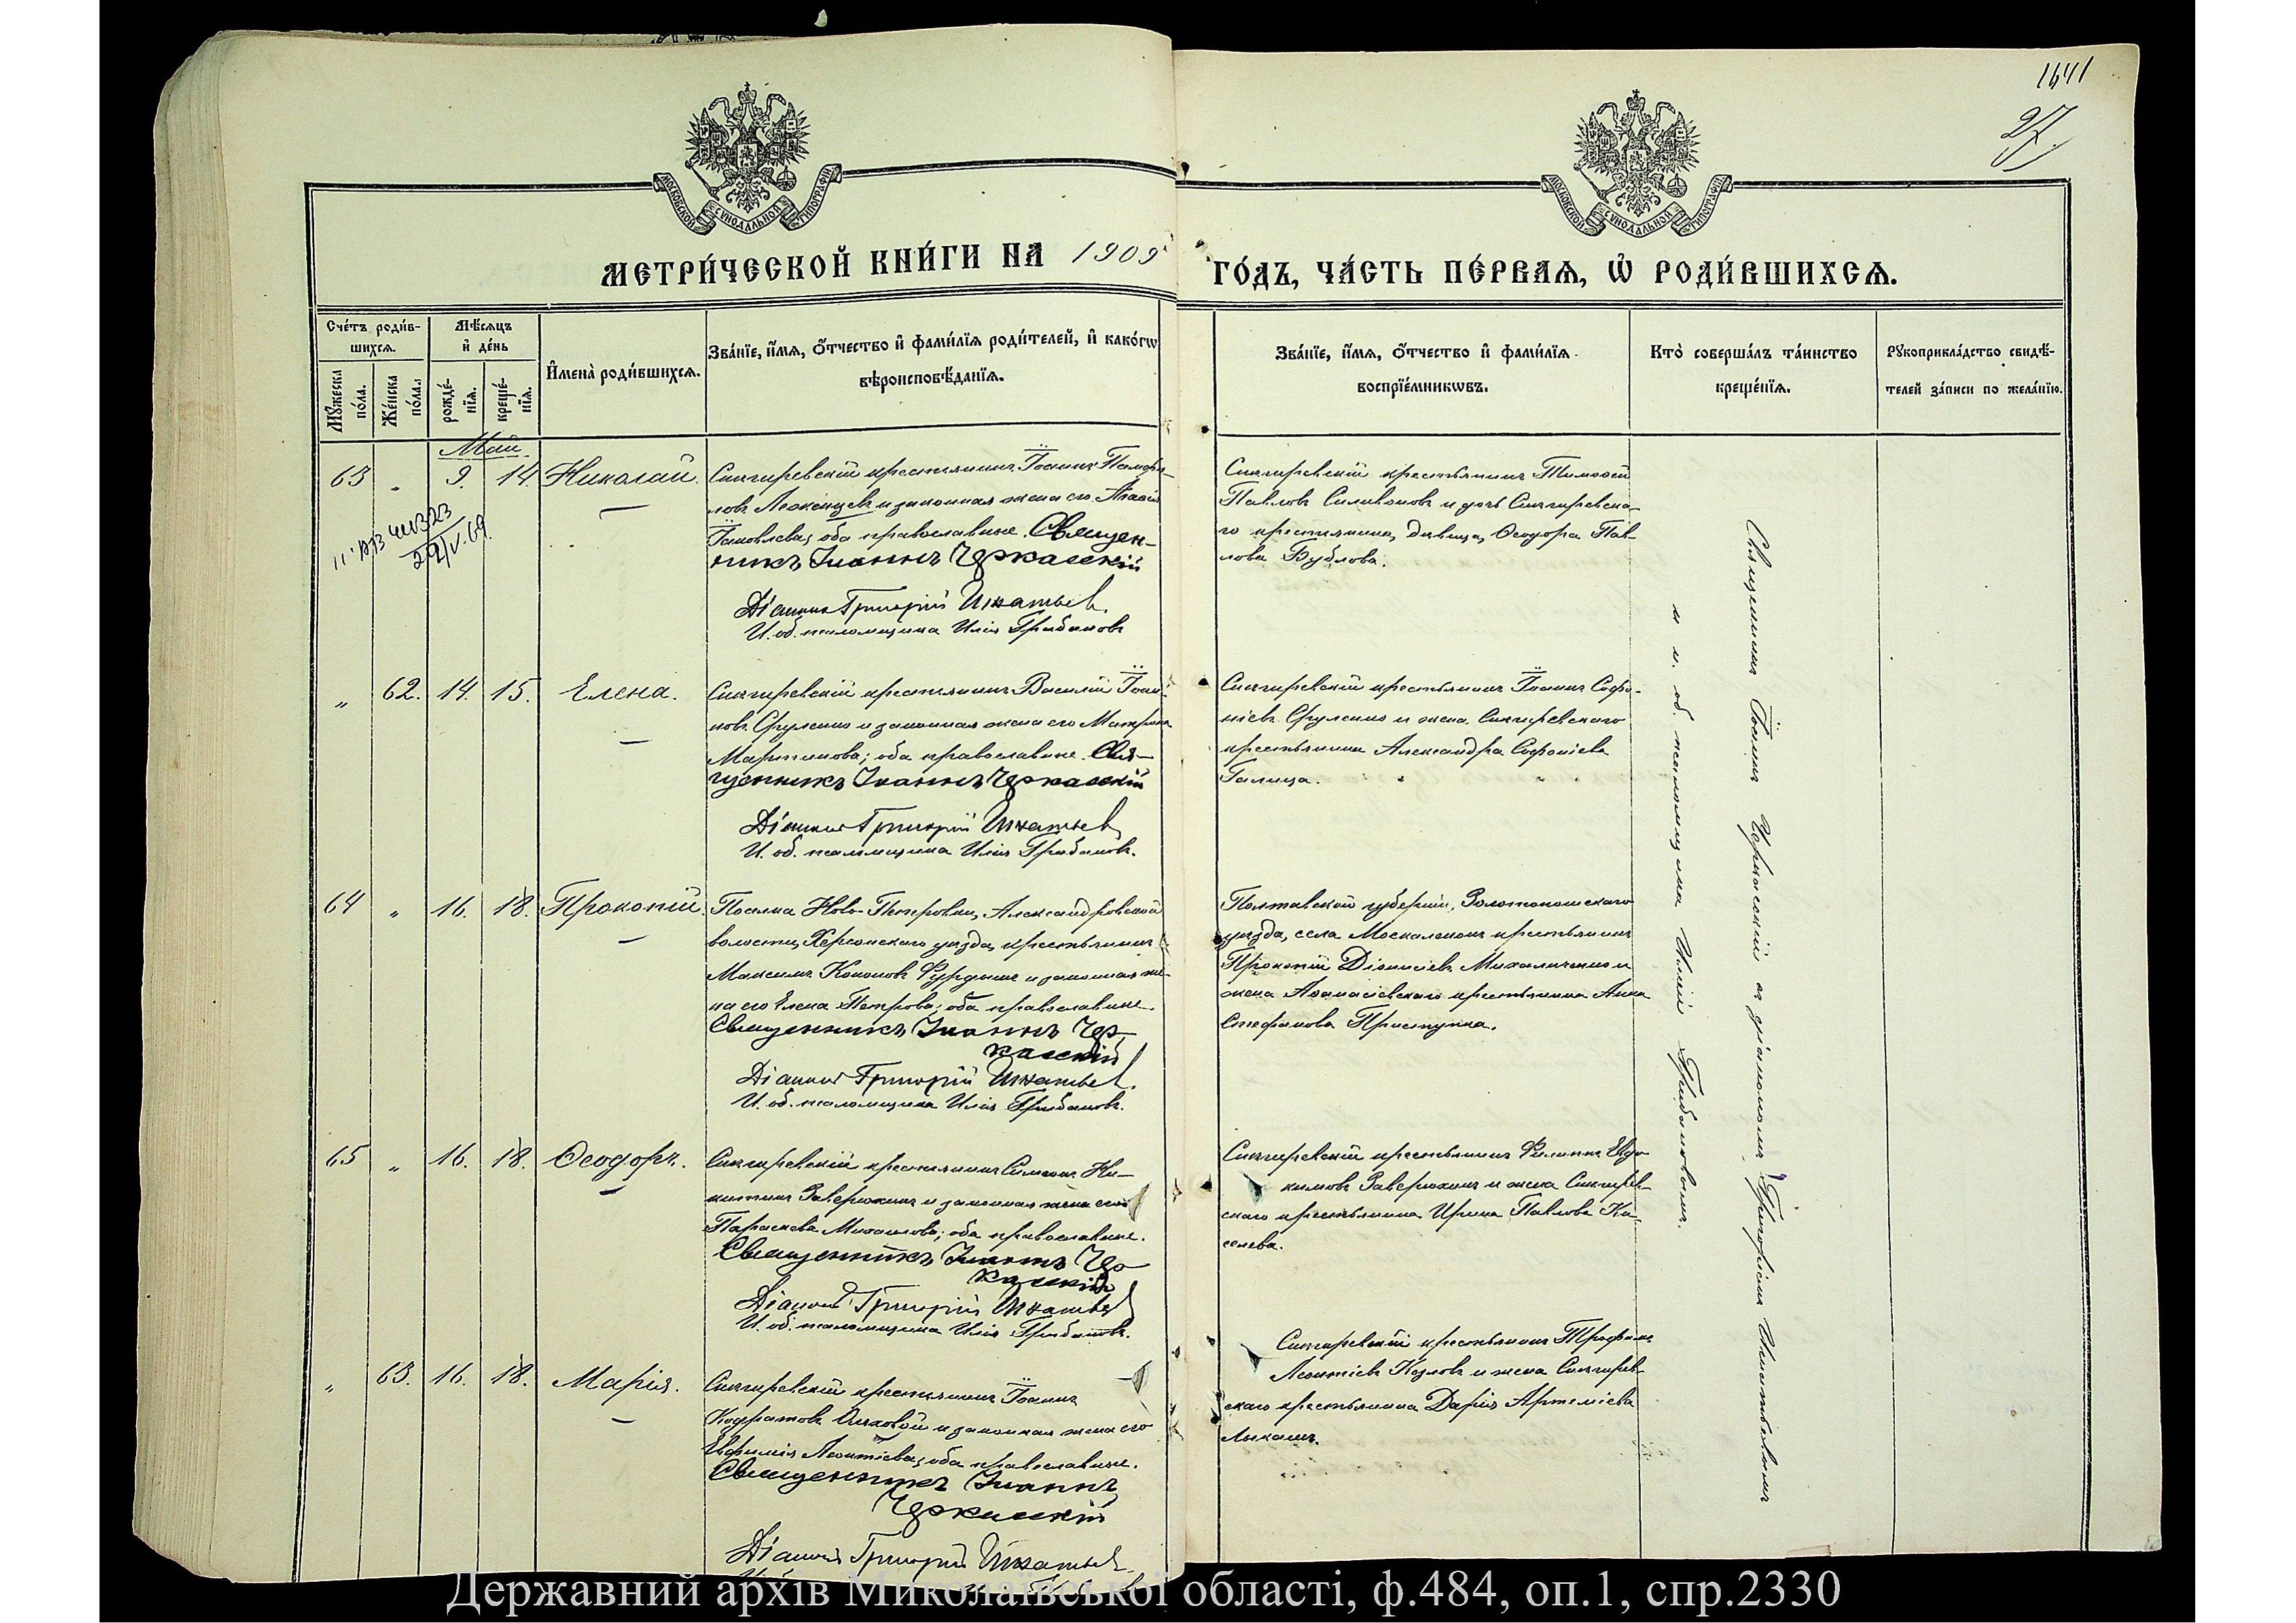 1641
27
МОСКОВСКОЙ СѴНОДАЛЬНОЙ ТИПОГРАФІИ
МОСКОВСКОЙ СѴНОДАЛЬНОЙ ТИПОГРАФІИ
МЕТРИ́ЧЕСКОЙ КНИ́ГИ НА 1909
ГО́ДЪ, ЧА́СТЬ ПЕ́РВАѦ, Ѡ҆ РОДИ́ВШИХСѦ.
Сче́тъ роди́в-
шихсѧ.
Мꙋ́жеска по́ла.
Же́нска по́ла.
Мѣ́сѧцъ
и҆ де́нь
рожде́-
нїѧ.
креще́-
нїѧ.
И҆мена̀ роди́вшихсѧ.
Зва́нїе, и҆́мѧ, ѻ҆́тчество и҆ фами́лїѧ роди́телей, и҆ како́гѡ
вѣроисповѣ́данїѧ.
Зва́нїе, и҆́мѧ, ѻ҆́тчество и҆ фами́лїѧ
воспрїе́мникѡвъ.
Кто̀ соверша́лъ та́инство
креще́нїѧ.
Рꙋкоприкла́дство свидѣ́-
телей за́писи по жела́нїю.
Май.
63 „ 9. 14. Николай.
Снигиревскій крестьянинъ Іоаннъ
и законная жена его
Іаковлева, оба православные. Священ-
никъ Іоаннъ Черкасскій
Діаконъ Григорій Игнатьев.
И. об. псаломщика Илія Грибановъ
Снигиревскій крестьянинъ Тимоѳей
Павловъ Силивоновъ и дочь Снигиревска-
го крестьянина, дѣвица, Ѳеодора Пав-
лова Бублова.
„ 62. 14. 15. Елена.
Снигиревскій крестьянинъ Василій Іоан-
новъ Фруленко и законная жена его Матрона
Мартинова; оба православные. Свя-
щенникъ Іоаннъ Черкасскій
Діаконъ Григорій Игнатьев
И. об. псаломщика Илія Грибановъ.
Снигиревскій крестьянинъ Іоаннъ Софо-
ніевъ Фруленко и жена Снигиревскаго
крестьянина Александра Софоніева
Галица.
64 „ 16. 18. Прокопій.
Поселка Ново-Петровки, Александровской
волости, Херсонскаго уѣзда, крестьянинъ
Максимъ Кононовъ и законная же-
на его Елена Петрова; оба православные.
Священникъ Іоаннъ Чер-
касскій
Діаконъ Григорій Игнатьев.
И. об. псаломщика Илія Грибановъ.
Полтавской губерніи, Золотоношскаго
уѣзда, села Москаленокъ крестьянинъ
Прокопій Діонисіевъ Михаличенко и
жена Аѳанасіевскаго крестьянина Анна
Стефанова Приступка.
65 „ 16. 18. Ѳеодоръ.
Снигиревскій крестьянинъ Симеонъ Ни-
китинъ Заверюхинъ и законная жена его
Параскева Михаилова; оба православные.
Священникъ Іоаннъ Чер
касскій
Діаконъ Григорій Игнатьев
И. об. псаломщика Илія Грибановъ.
Снигиревскій крестьянинъ Филиппъ Евдо-
кимовъ Заверюхинъ и жена Снигирев-
скаго крестьянина Ирина Павлова Ки-
селева.
„ 63. 16. 18. Марія.
Снигиревскій крестьянинъ Іоаннъ
Кодратовъ и законная жена его
Евфимія Леонтіева; оба православные.
Священникъ Іоаннъ
Черкасскій
Діаконъ Григорій Игнатьев
Снигиревскій крестьянинъ Трофимъ
Леонтіевъ Козловъ и жена Снигирев-
скаго крестьянина Дарія Артеміева
Лыкамъ.
Священникъ Іоаннъ Черкасскій съ діакономъ Григоріемъ Игнатьевымъ
и и. об. псаломщика Иліей Грибановымъ.
Державний архів Миколаївської області, ф.484, оп.1, спр.2330